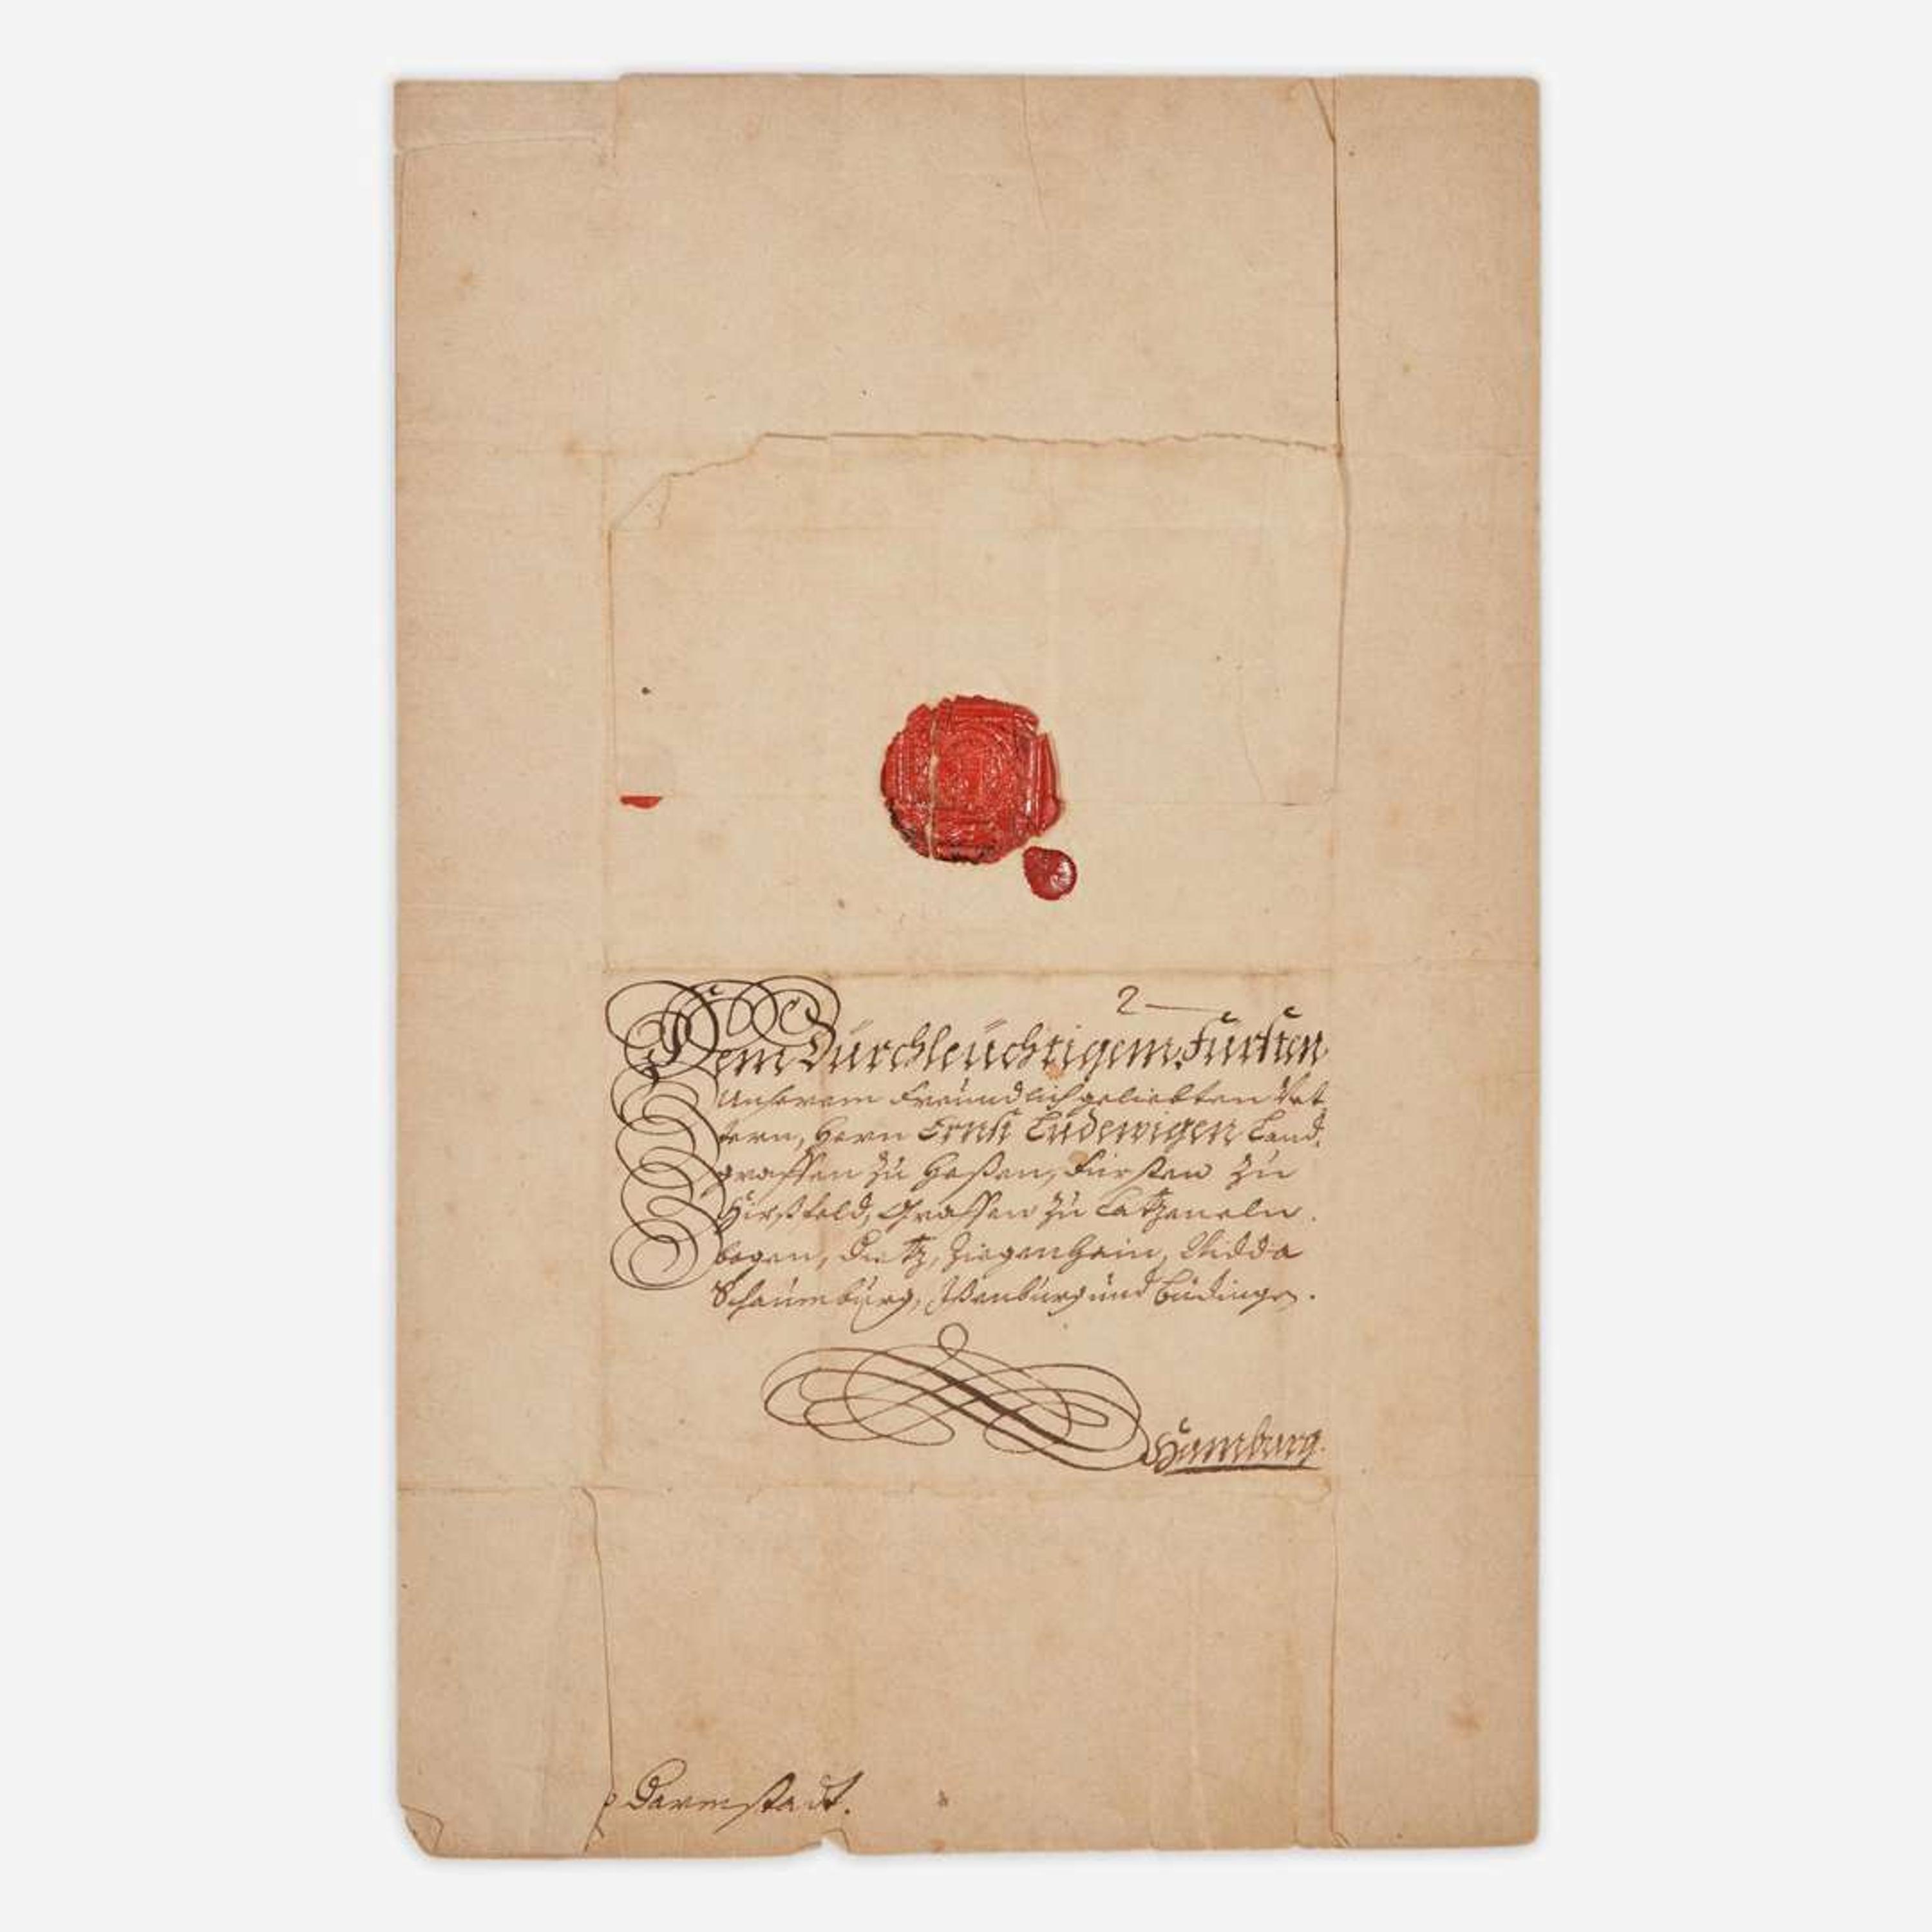 2
Dem Durchleüchtigem Fürsten
Unserem Freündlich geliebten Vet
tern, Herrn Ernst Lüdewigen Land,
graffen zu Heßen, Fürsten zu
Hirßfeld, Graffen zu Catzeneln.
bogen, Dietz, Ziegenhain, Nidda
Schaumburg, Ißenburg und Büdingen.
Hamburg.
Darmstadt.